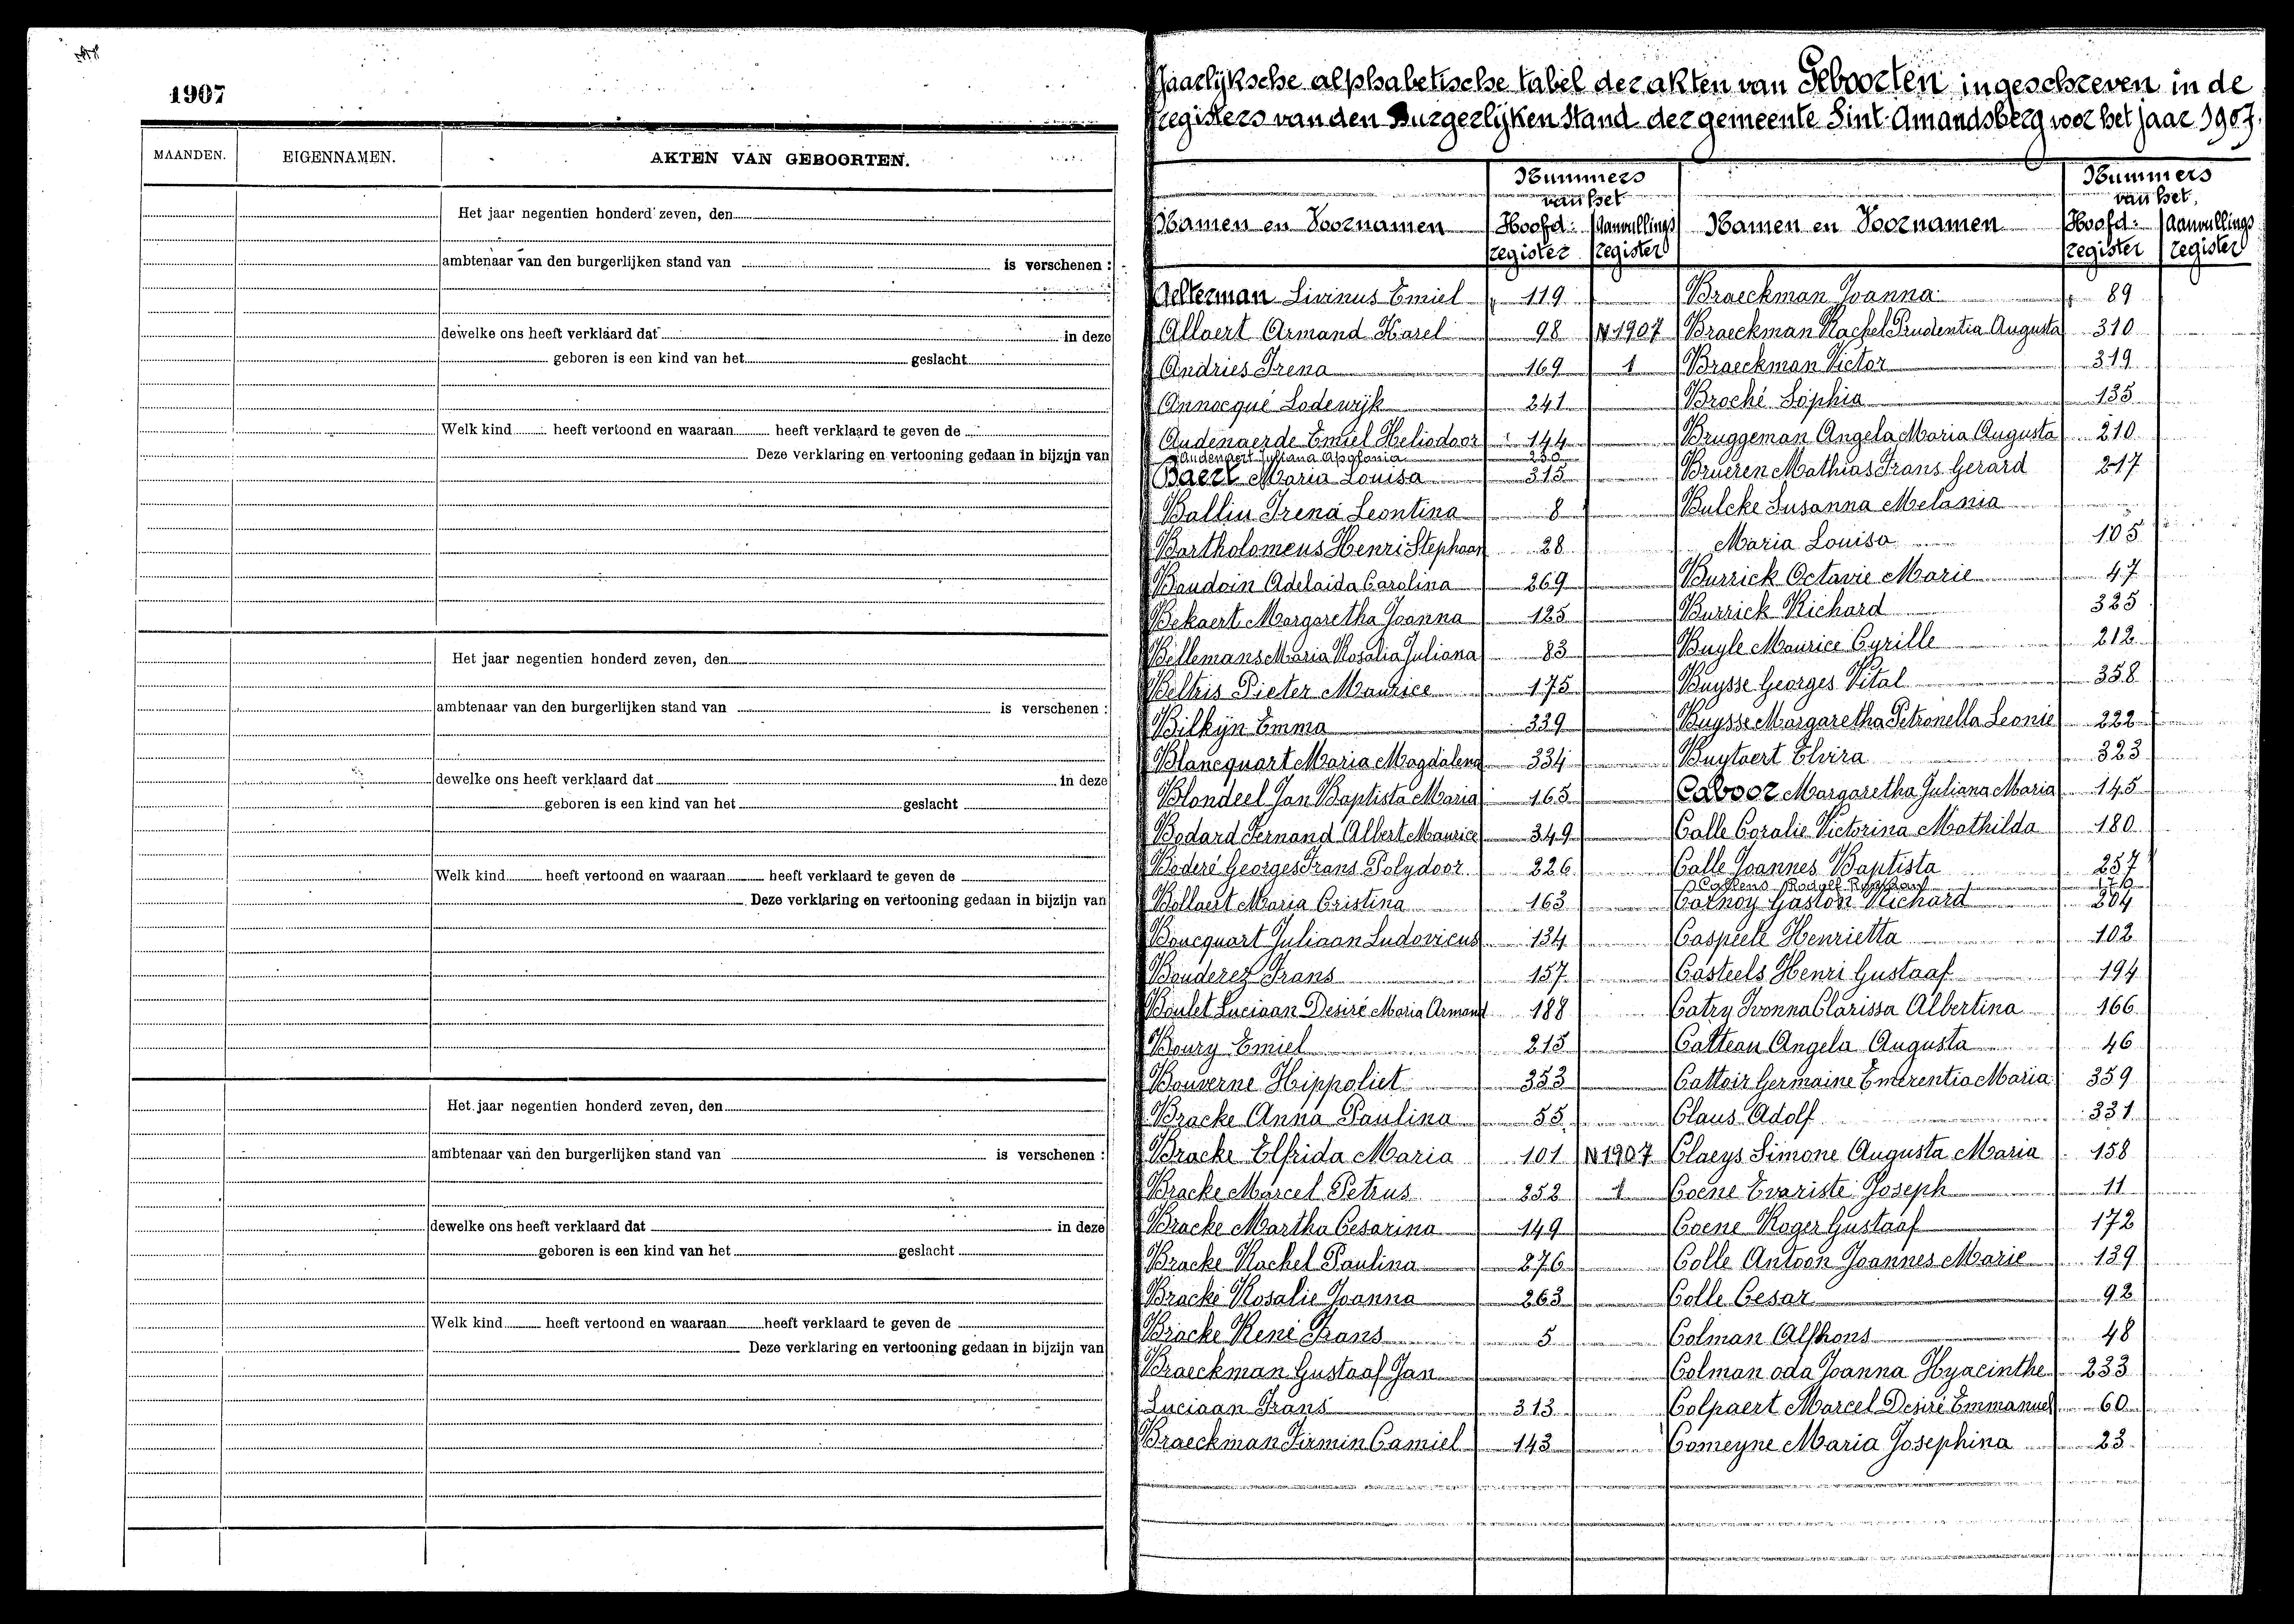 1907
MAANDEN. EIGENNAMEN. AKTEN VAN GEBOORTEN.
Het jaar negentien honderd zeven, den
ambtenaar van den burgerlijken stand van is verschenen :
dewelke ons heeft verklaard dat in deze
geboren is een kind van het geslacht
Welk kind heeft vertoond en waaraan heeft verklaard te geven de
Deze verklaring en vertooning gedaan in bijzijn van
Het jaar negentien honderd zeven, den
ambtenaar van den burgerlijken stand van is verschenen :
dewelke ons heeft verklaard dat in deze
geboren is een kind van het geslacht
Welk kind heeft vertoond en waaraan heeft verklaard te geven de
Deze verklaring en vertooning gedaan in bijzijn van
Het jaar negentien honderd zeven, den
ambtenaar van den burgerlijken stand van is verschenen :
dewelke ons heeft verklaard dat in deze
geboren is een kind van het geslacht
Welk kind heeft vertoond en waaraan heeft verklaard te geven de
Deze verklaring en vertooning gedaan in bijzijn van
Jaarlijksche alphabetische tabel der akten van Geboorten ingeschreven in de
registers van den Burgerlijken Stand der gemeente Sint-Amandsberg voor het jaar 1907.
Namen en Voornamen Nummers van het Hoofd: register Aanvullings register
Aelterman Livinus Emiel 119
Allaert Armand Karel 98 N 1907
Andries Irena 169 1
Annocqué Lodewijk 241
Audenaerde Emiel Heliodoor 144
Audenaert Juliana Apolonia
Baert Maria Louisa 315
Ballin Irena Leontina 8
Bartholomeus Henri Stephaan 28
Baudoin Adelaida Carolina 269
Bekaert Margaretha Joanna 125
Bellemans Maria Rosalia Juliana 83
Beltris Pieter Maurice 175
Bilkyn Emma 339
Blancquart Maria Magdalena 334
Blondeel Jan Baptista Maria 165
Bodard Fernand Albert Maurice 349
Boderé Georges Frans Polydoor 226
Bollaert Maria Cristina 163
Boucquart Juliaan Ludovicus 134
Bouderez Frans 157
Boulet Luciaan Desiré Maria Armand 188
Boury Emiel 215
Bouverne Hippoliet 353
Bracke Anna Paulina 55
Bracke Elfrida Maria 101 N 1907
Bracke Marcel Petrus 252 1
Bracke Martha Cesarina 149
Bracke Rachel Paulina 276
Bracke Rosalie Joanna 263
Bracke René Frans 5
Braeckman Gustaaf Jan
Luciaan Frans 313
Braeckman Firmin Camiel 143
Namen en Voornamen Nummers van het Hoofd: register Aanvullings register
Braeckman Joanna 89
Braeckman Rachel Prudentia Augusta 310
Braeckman Victor 319
Broché Sophia 135
Bruggeman Angela Maria Augusta 210
Brueren Mathias Frans Gerard 217
Bulcke Susanna Melania
Maria Louisa 105
Burrick Octavie Marie 47
Burrick Richard 325
Buyle Maurice Cyrille 212
Buysse Georges Vital 358
Buysse Margaretha Petronella Leonie 222
Buytaert Elvira 323
Caboor Margaretha Juliana Maria 145
Calle Coralie Victorina Mathilda 180
Calle Joannes Baptista 257
Calnoy Gaston Richard 204
Caspeele Henrietta 102
Casteels Henri Gustaaf 194
Catry Ivonna Clarissa Albertina 166
Catteau Angela Augusta 46
Cattoir Germaine Emerentia Maria 359
Claus Adolf 331
Claeys Simone Augusta Maria 158
Coene Evariste Joseph 11
Coene Roger Gustaaf 172
Colle Antoon Joannes Marie 139
Colle Cesar 92
Colman Alfhons 48
Colman oda Joanna Hyacinthe 233
Colpaert Marcel Desiré Emmanuel 60
Comeyne Maria Josephina 23